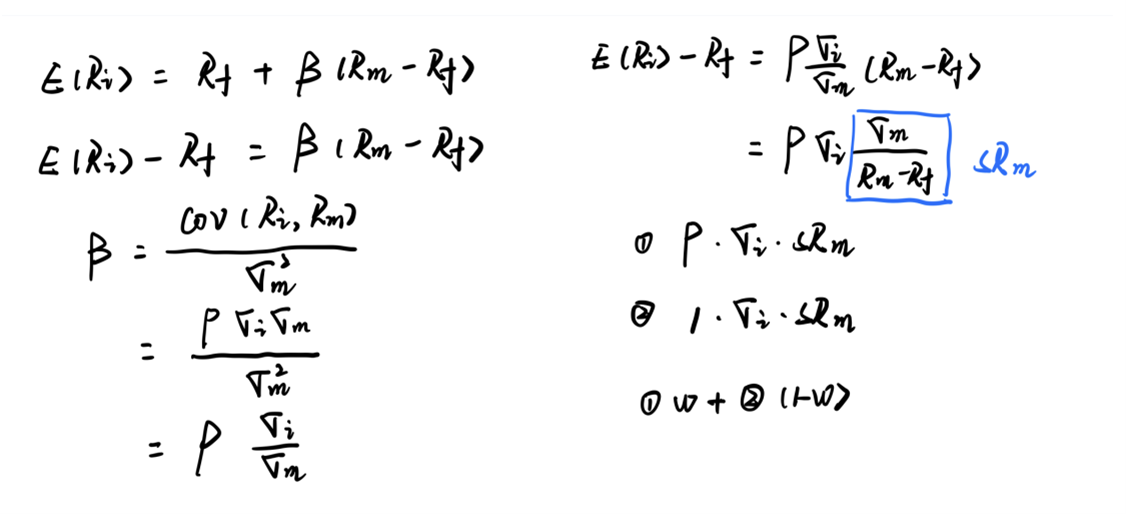 E(Ri) = Rf + β(Rm - Rf)
E(Ri) - Rf = β(Rm - Rf)
β = cov(Ri, Rm) / σm²
= ρσiσm / σm²
= ρ σi/σm
E(Ri) - Rf = ρ σi/σm (Rm - Rf)
= ρσi σm/(Rm - Rf) SRm
① ρ · σi · SRm
② 1 · σi · SRm
① w + ② (1-w)